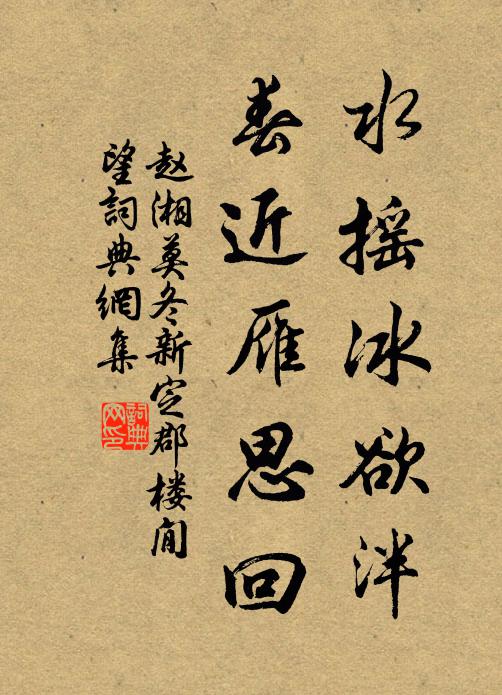 水摇冰欲泮
春近雁思回
赵湘莫冬新定郡楼閒
望詞典網集
詞典
网印